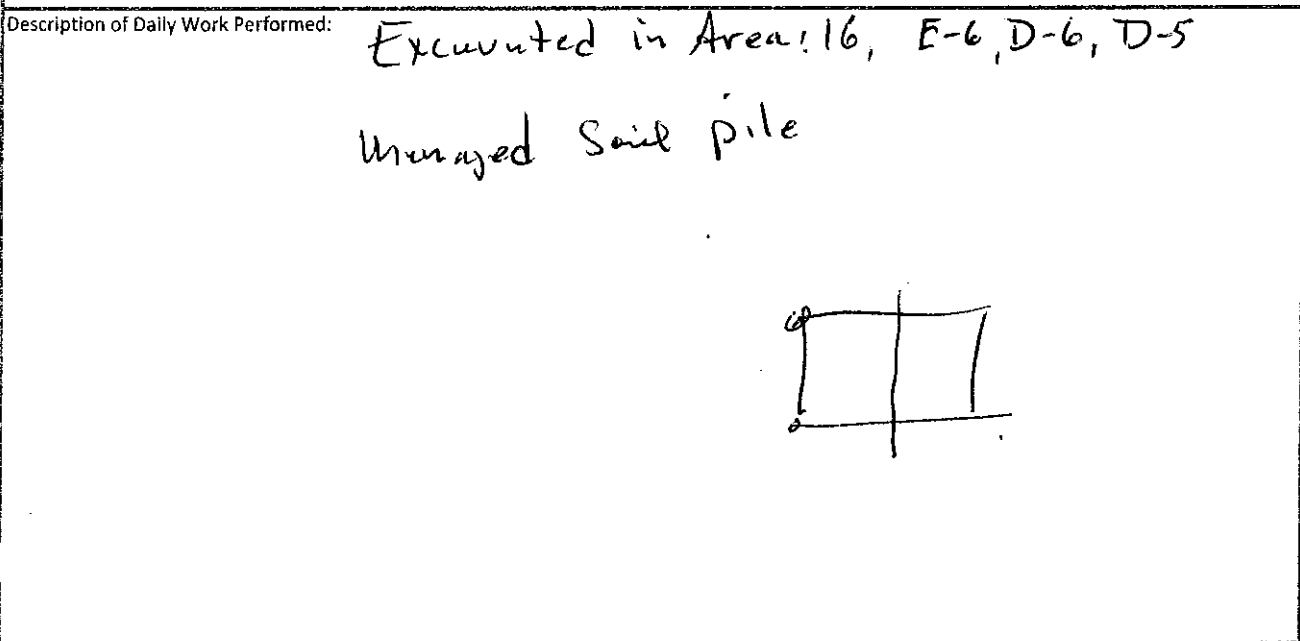 Description of Daily Work Performed: Excavated in Area: 16, E-6, D-6, D-5
Managed Soil pile